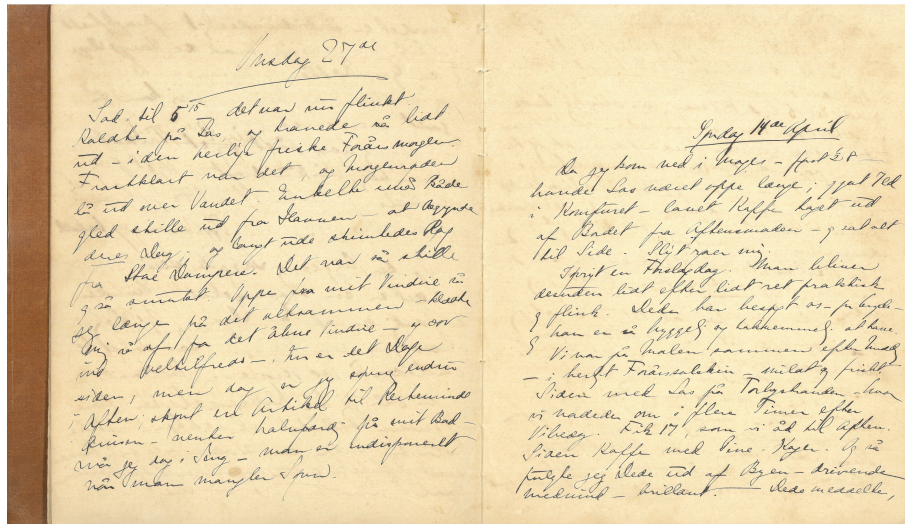 Onsdag 27de
Sad til 5 15 det var nu flinkt
holdke på Las og travede så lidt
ud – i den herlige friske Forårsmorgen.
Frostklart var det, og Morgenrøden
lå ud over Vandet. Enkelte små Både
gled stille ud fra Havnen – at begynde
deres Dag, og langt ude skimtedes Røg
fra Store Dampere. Det var så stille
og så smukt. Oppe fra mit Vindue så
jeg længe på det altsammen – klædte
mig så af for det åbne Vindue – og sov
ind veltilfreds –. Nu er det Dage
siden, men dog er jeg søvnig endnu
i Aften. skønt en Artikel til Kerteminde
Avisen – venter halvfærdig på mit Bord –
må jeg dog i Seng – man er indisponeret,
når man mangler Søvn.
Søndag 14de April
Da jeg kom ned i Morges – først ½8 –
havde Las været oppe længe; gjort Ild
i Komfuret – lavet Kaffe taget ud
af Bordet fra Aftensmaden – og sat alt
til Side.
I øvrigt en Forårsdag. Man bliver
desuden lidt efter lidt ret praktisk
og flink. Dede har besøgt os –
han er så hyggelig og taknemmelig at have.
Vi var på Malen sammen efter Middag
– i herligt Forårssolskin – mildt og friskt
Siden med Las på Torbystranden – hvor
vi vadede om i flere Timer efter
Vibeæg. Fik 17, som vi åd til Aften.
Siden Kaffe med Fine Kager. Og så
fulgte jeg Dede ud af Byen – drivende
medvind – brillant. – Dede meddelte,